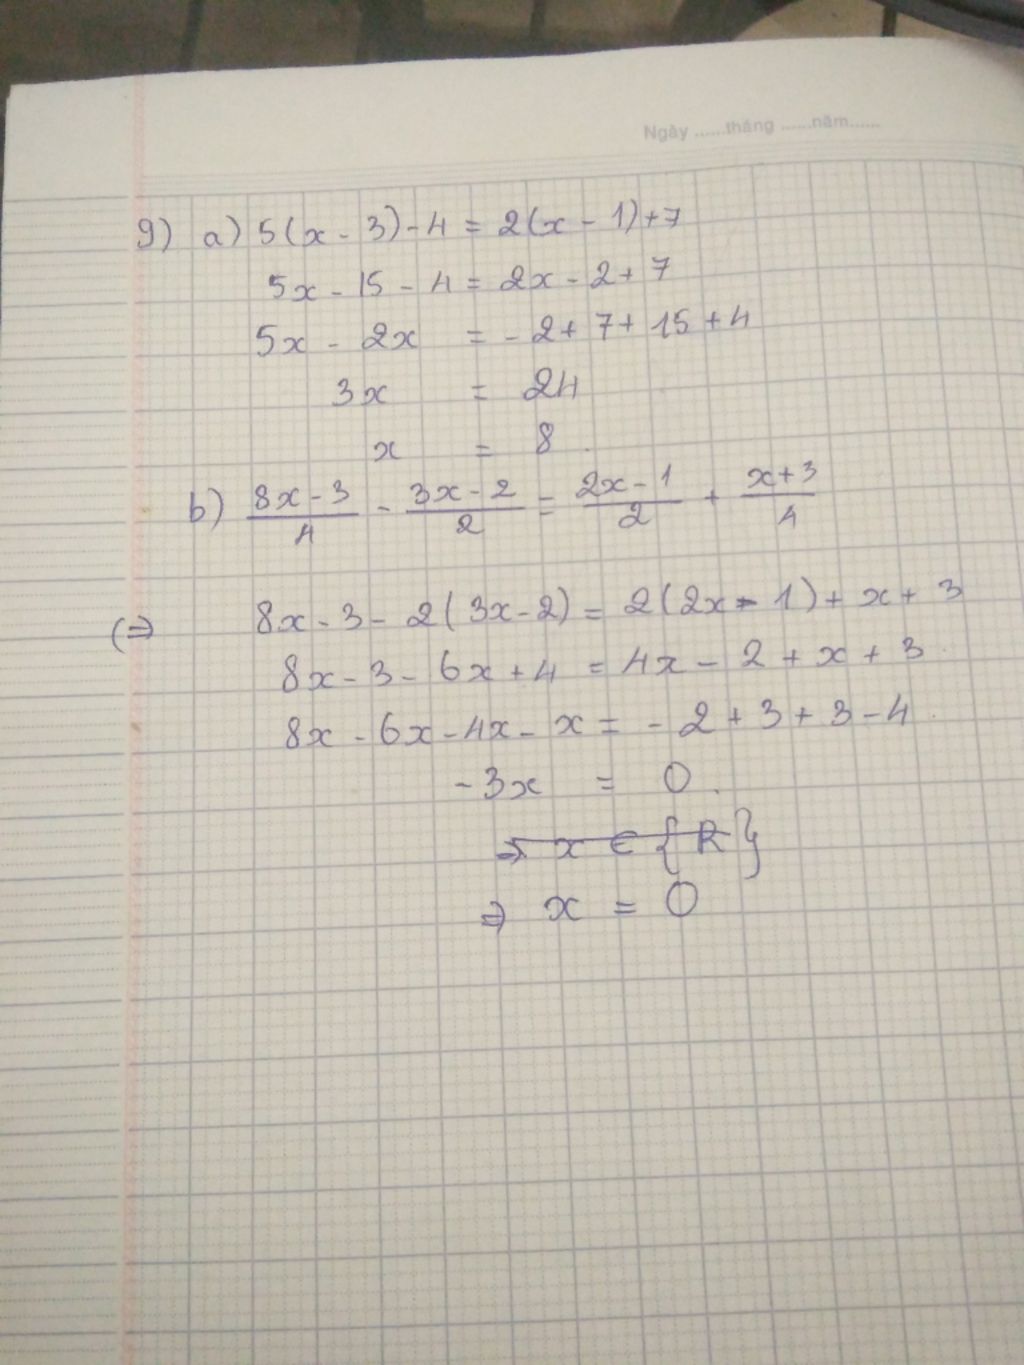 Ngày ......tháng ......năm......
9) a) 5(x - 3) - 4 = 2(x - 1) + 7
5x - 15 - 4 = 2x - 2 + 7
5x - 2x = - 2 + 7 + 15 + 4
3x = 24
x = 8.
b) \frac{8x - 3}{4} - \frac{3x - 2}{2} = \frac{2x - 1}{2} + \frac{x + 3}{4}
(⇒ 8x - 3 - 2(3x - 2) = 2(2x - 1) + x + 3
8x - 3 - 6x + 4 = 4x - 2 + x + 3.
8x - 6x - 4x - x = - 2 + 3 + 3 - 4.
- 3x = 0.
⇒ x ∈ {R}
⇒ x = 0